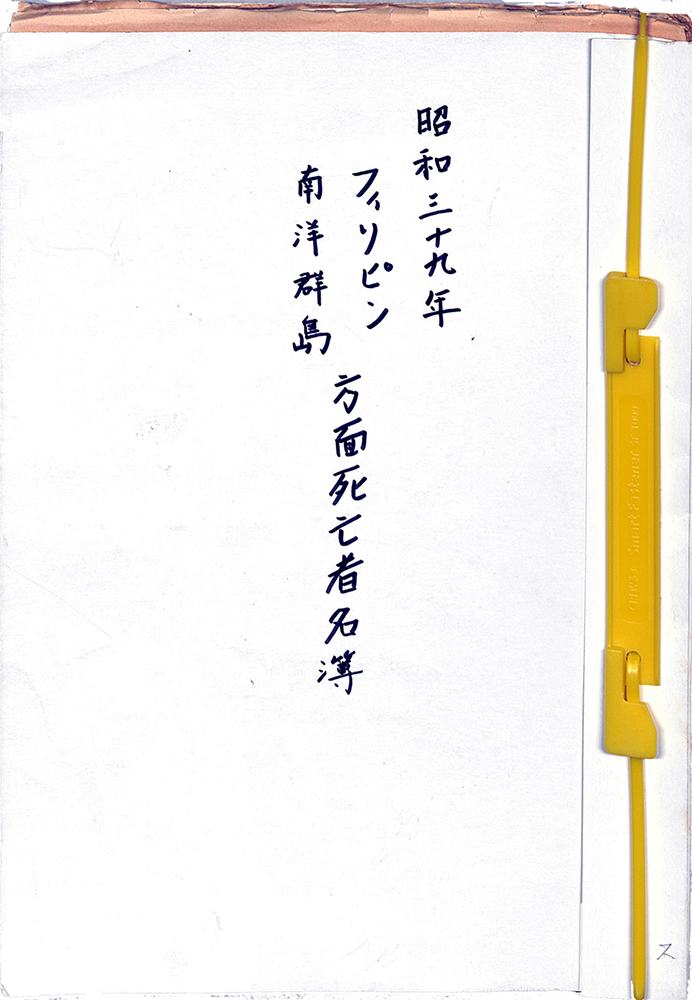 昭和三十九年
フィリピン
南洋群島
方面死亡者名簿
Smart Fastener
ス